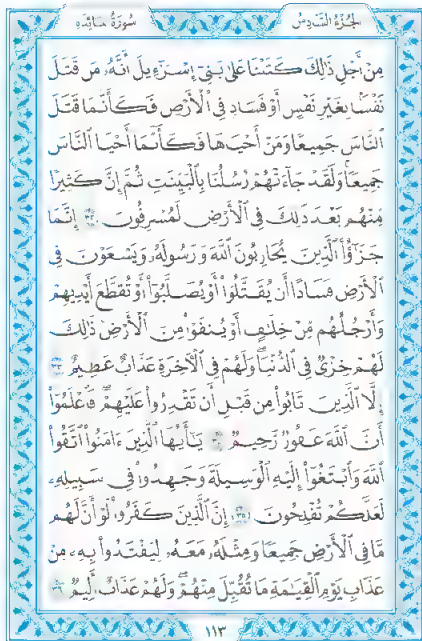 الجُزْءُ السَّادِسُ سُورَةُ مَائِدَه
مِنْ أَجْلِ ذَٰلِكَ كَتَبْنَا عَلَىٰ بَنِىٓ إِسْرَٰٓءِيلَ أَنَّهُۥ مَن قَتَلَ
نَفْسًۢا بِغَيْرِ نَفْسٍ أَوْ فَسَادٍ فِى ٱلْأَرْضِ فَكَأَنَّمَا قَتَلَ
ٱلنَّاسَ جَمِيعًا وَمَنْ أَحْيَاهَا فَكَأَنَّمَآ أَحْيَا ٱلنَّاسَ
جَمِيعًا وَلَقَدْ جَآءَتْهُمْ رُسُلُنَا بِٱلْبَيِّنَٰتِ ثُمَّ إِنَّ كَثِيرًا
مِّنْهُم بَعْدَ ذَٰلِكَ فِى ٱلْأَرْضِ لَمُسْرِفُونَ ٣٢ إِنَّمَا
جَزَٰٓؤُا۟ ٱلَّذِينَ يُحَارِبُونَ ٱللَّهَ وَرَسُولَهُۥ وَيَسْعَوْنَ فِى
ٱلْأَرْضِ فَسَادًا أَن يُقَتَّلُوٓا۟ أَوْ يُصَلَّبُوٓا۟ أَوْ تُقَطَّعَ أَيْدِيهِمْ
وَأَرْجُلُهُم مِّنْ خِلَٰفٍ أَوْ يُنفَوْا۟ مِنَ ٱلْأَرْضِ ذَٰلِكَ
لَهُمْ خِزْىٌ فِى ٱلدُّنْيَا وَلَهُمْ فِى ٱلْءَاخِرَةِ عَذَابٌ عَظِيمٌ ٣٣
إِلَّا ٱلَّذِينَ تَابُوا۟ مِن قَبْلِ أَن تَقْدِرُوا۟ عَلَيْهِمْ فَٱعْلَمُوٓا۟
أَنَّ ٱللَّهَ غَفُورٌ رَّحِيمٌ ٣٤ يَٰٓأَيُّهَا ٱلَّذِينَ ءَامَنُوا۟ ٱتَّقُوا۟
ٱللَّهَ وَٱبْتَغُوٓا۟ إِلَيْهِ ٱلْوَسِيلَةَ وَجَٰهِدُوا۟ فِى سَبِيلِهِۦ
لَعَلَّكُمْ تُفْلِحُونَ ٣٥ إِنَّ ٱلَّذِينَ كَفَرُوا۟ لَوْ أَنَّ لَهُم
مَّا فِى ٱلْأَرْضِ جَمِيعًا وَمِثْلَهُۥ مَعَهُۥ لِيَفْتَدُوا۟ بِهِۦ مِنْ
عَذَابِ يَوْمِ ٱلْقِيَٰمَةِ مَا تُقُبِّلَ مِنْهُمْ وَلَهُمْ عَذَابٌ أَلِيمٌ ٣٦
١١٣